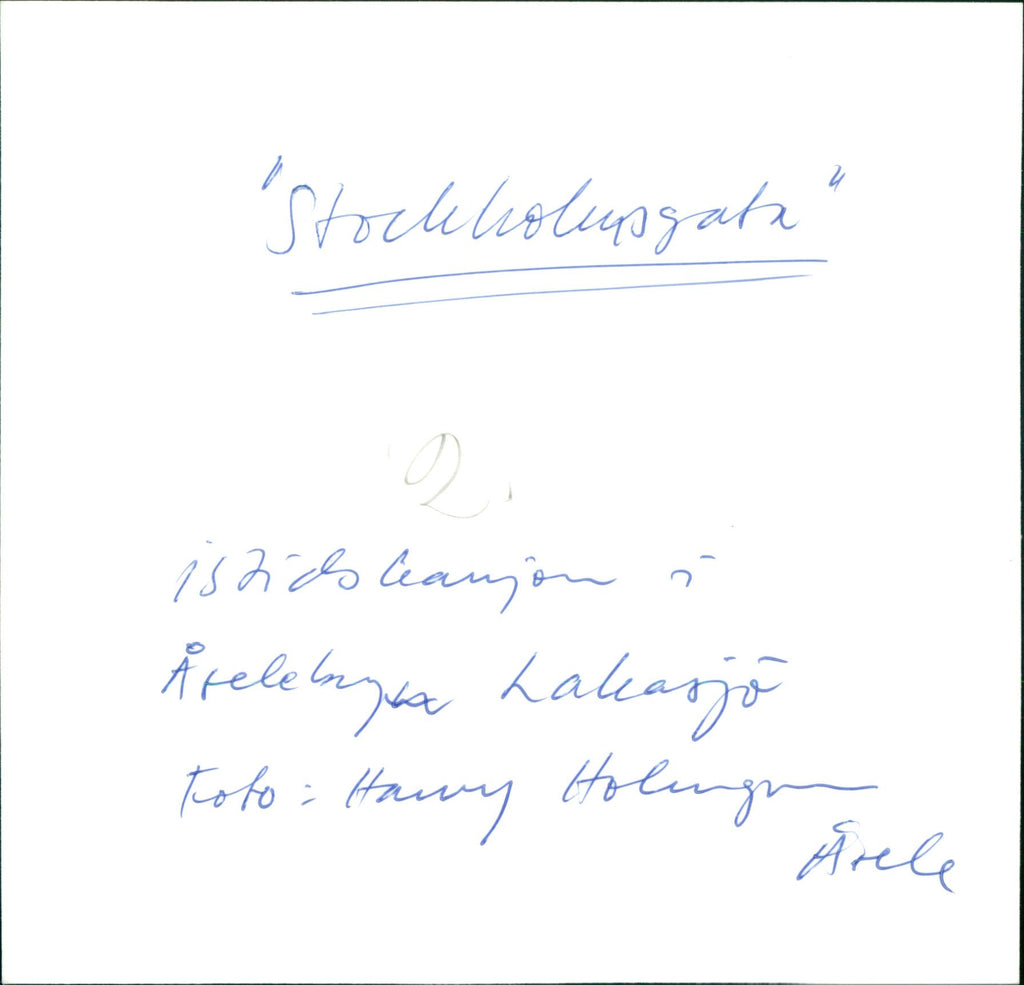 "Stockholmsgata"
2.
istidskanjon i
Åselebygx Lakasjö
Foto: Harry Holmgren
Åsele